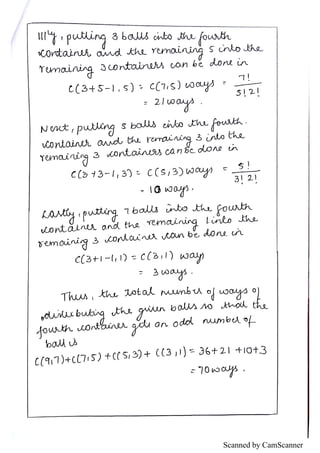 IIIly, putting 3 balls into the fourth
container and the remaining 5 into the
remaining 3 containers can be done in
C(3+5-1, 5) = C(7,5) ways = 7! / 5! 2!
= 21 ways.
Next, putting 5 balls into the fourth.
container and the remaining 3 into the
remaining 3 containers can be done in
C(3+3-1, 3) = C(5,3) ways = 5! / 3! 2!
= 10 ways.
Lastly, putting 7 balls into the fourth
container and the remaining 1 into the
remaining 3 container can be done in
C(3+1-1, 1) = C(3,1) way
= 3 ways.
Thus, the total number of ways of
distributing the given balls so that the
fourth container gets an odd number of
ball is
C(9,7)+C(7,5)+C(5,3)+ C(3,1) = 36+21+10+3
= 70 ways.
Scanned by CamScanner